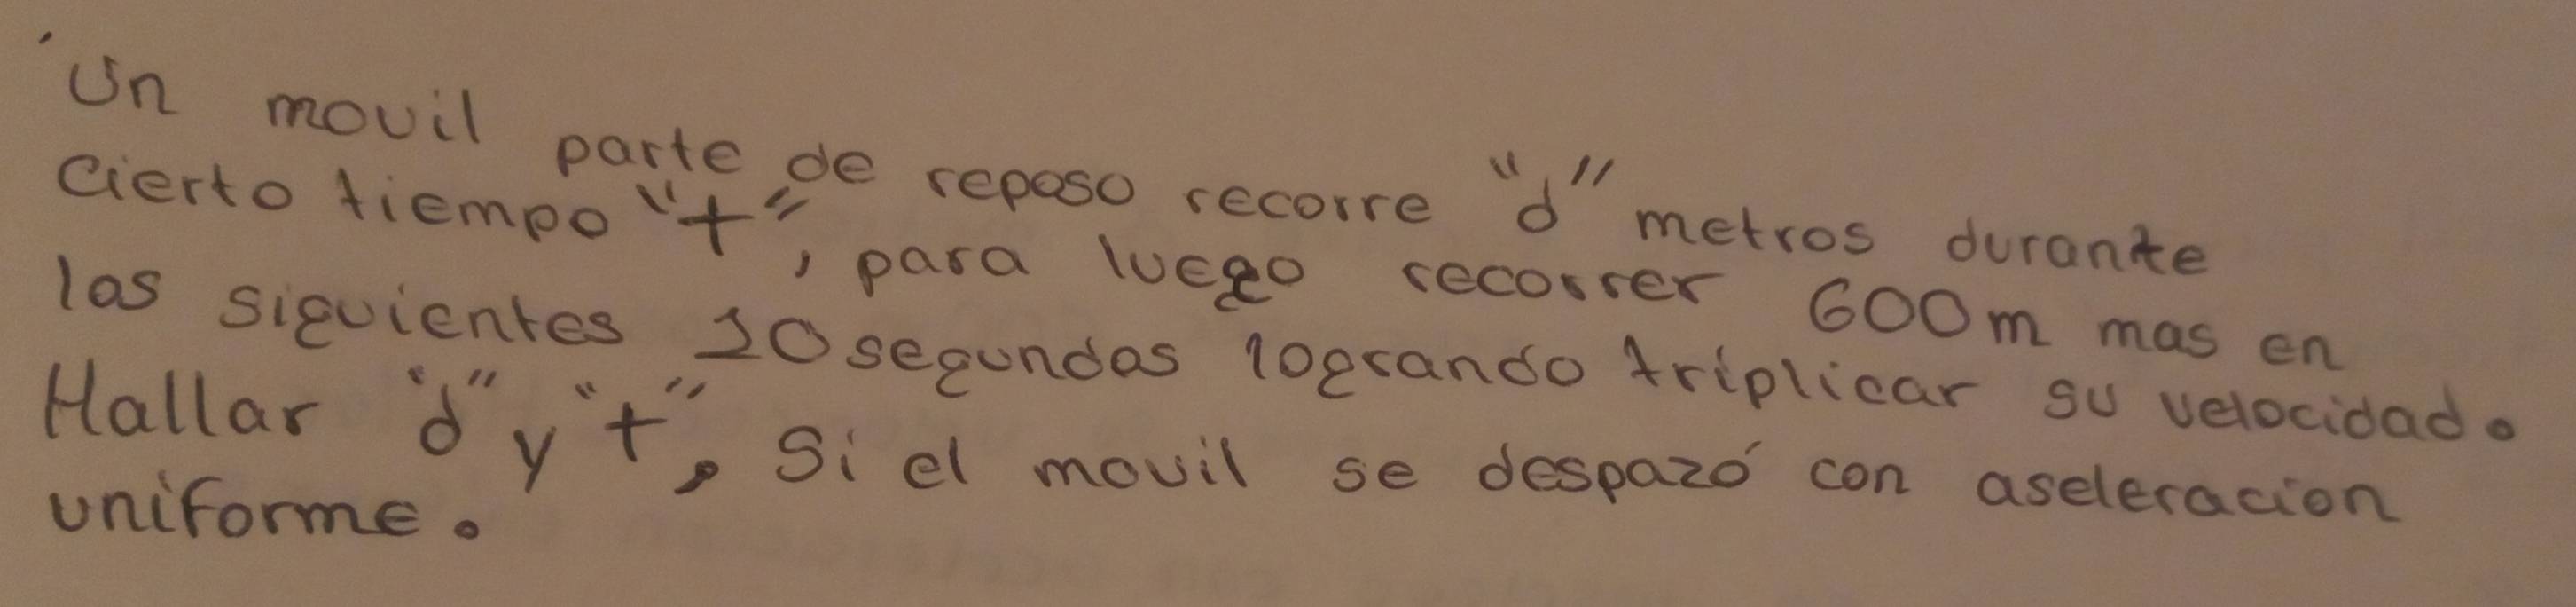 Un movil parte de reposo recorre "d" metros durante
cierto tiempo "t", para luego recorrer 600m mas en
los siguientes 10 segundos logrando triplicar su velocidad.
Hallar "d" y "t", Si el movil se despazó con aseleracion
uniforme.